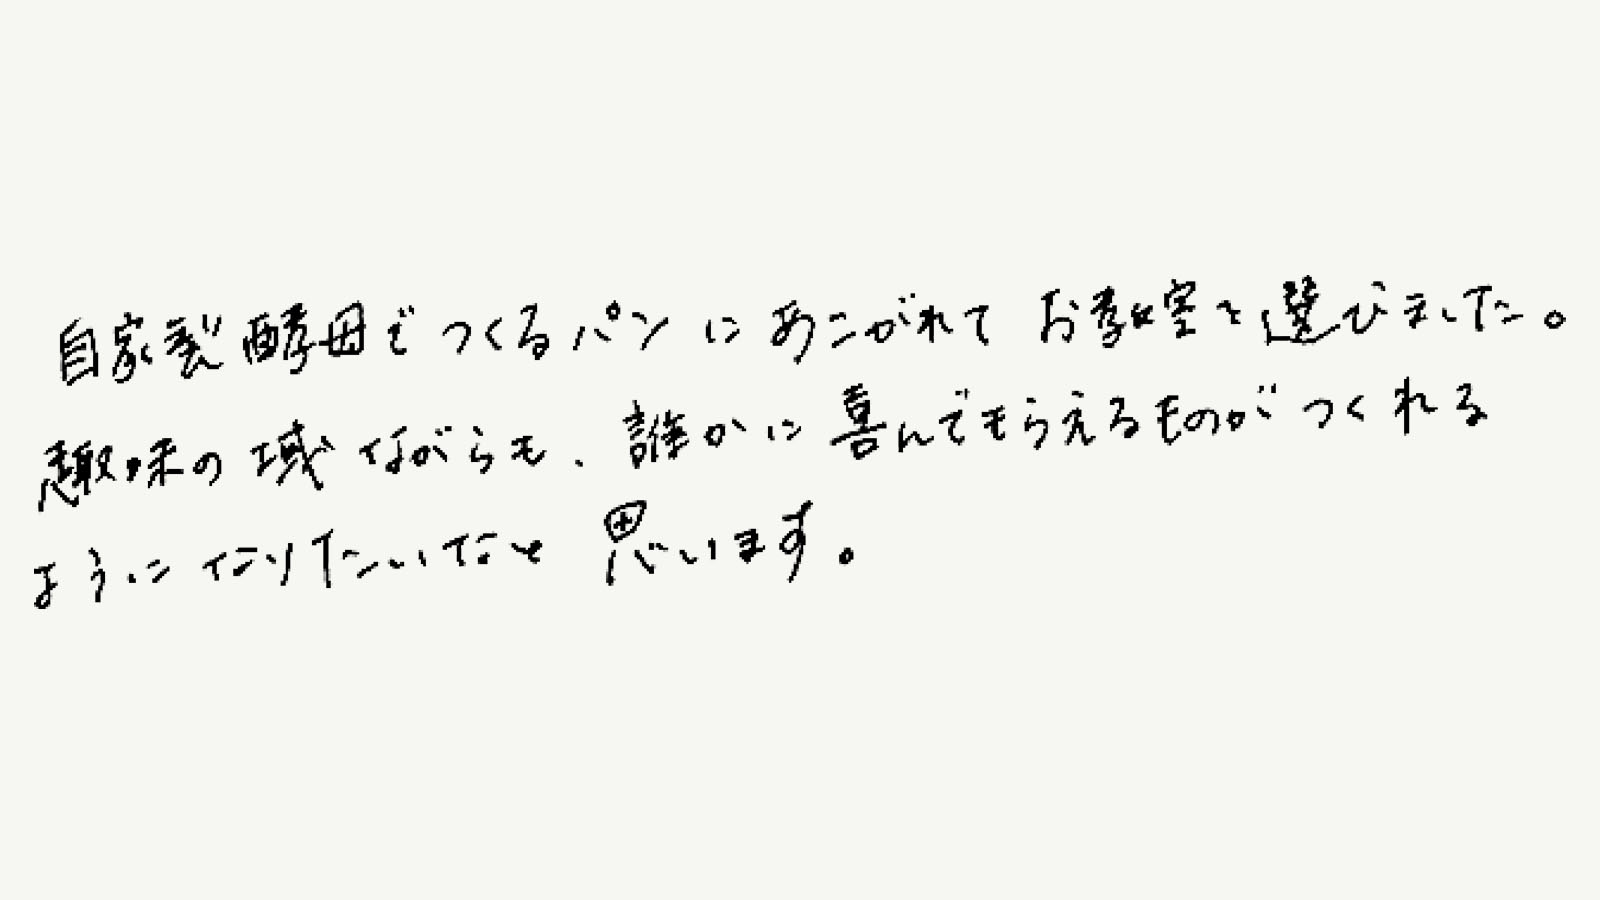 自家製酵母でつくるパンにあこがれてお教室を選びました。
趣味の域ながらも、誰かに喜んでもらえるものがつくれる
ようになりたいなと思います。